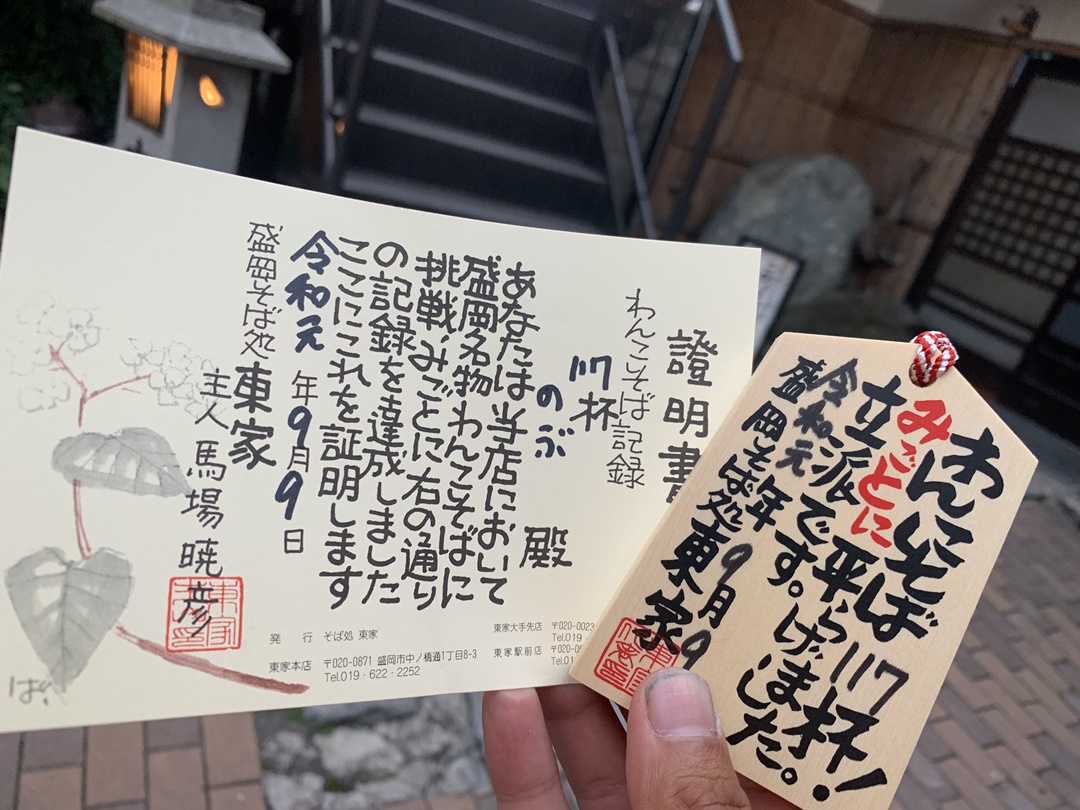 證明書
わんこそば記録
117杯
のぶ 殿
あなたは当店において
盛岡名物わんこそばに
挑戦、みごとに右の通り
の記録を達成しました
ここにこれを証明します
令和元年9月9日
盛岡そば処 東家
主人 馬場 暁彦
発 行 そば処 東家
東家本店 〒020-0871 盛岡市中ノ橋通1丁目8-3
Tel.019・622・2252
東家大手先店 〒020-0023
Tel.019
東家駅前店 〒020-0
Tel.019
わんこそば 117杯!
みごとに平らげました。
立派です。
令和元年9月9
盛岡そば処 東家